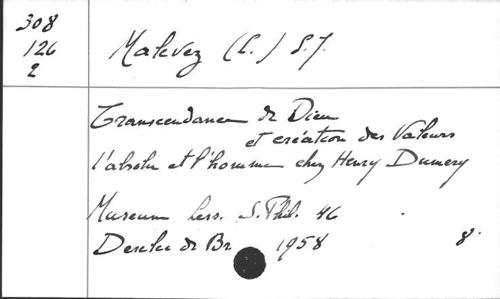 308
126
2
Malevez (L.) S.J.
Transcendance de Dieu
et création des Valeurs
l'absolu et l'homme chez Henry Dumery
Museum Less. S. Phil. 46
Desclée de Br. 1958 8°